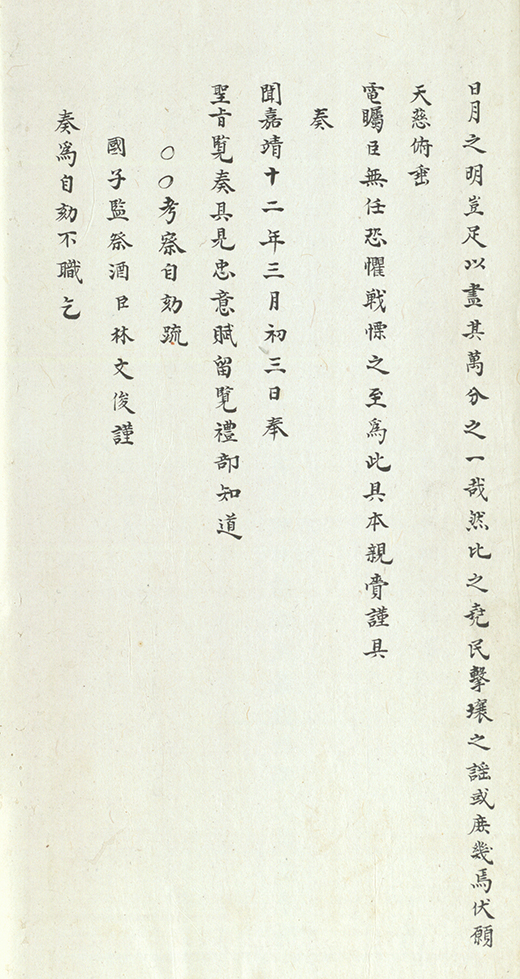 日月之明豈足以盡其萬分之一哉然比之堯民擊壤之謡或庶幾焉伏願
天慈俯垂
電矚臣無任恐懼戦慄之至爲此具本親賷謹具
奏
聞嘉靖十二年三月初三日奉
聖旨覽奏具見忠意賦留覽禮部知道
○○考察自劾疏
國子監祭酒臣林文俊謹
奏爲自劾不職乞